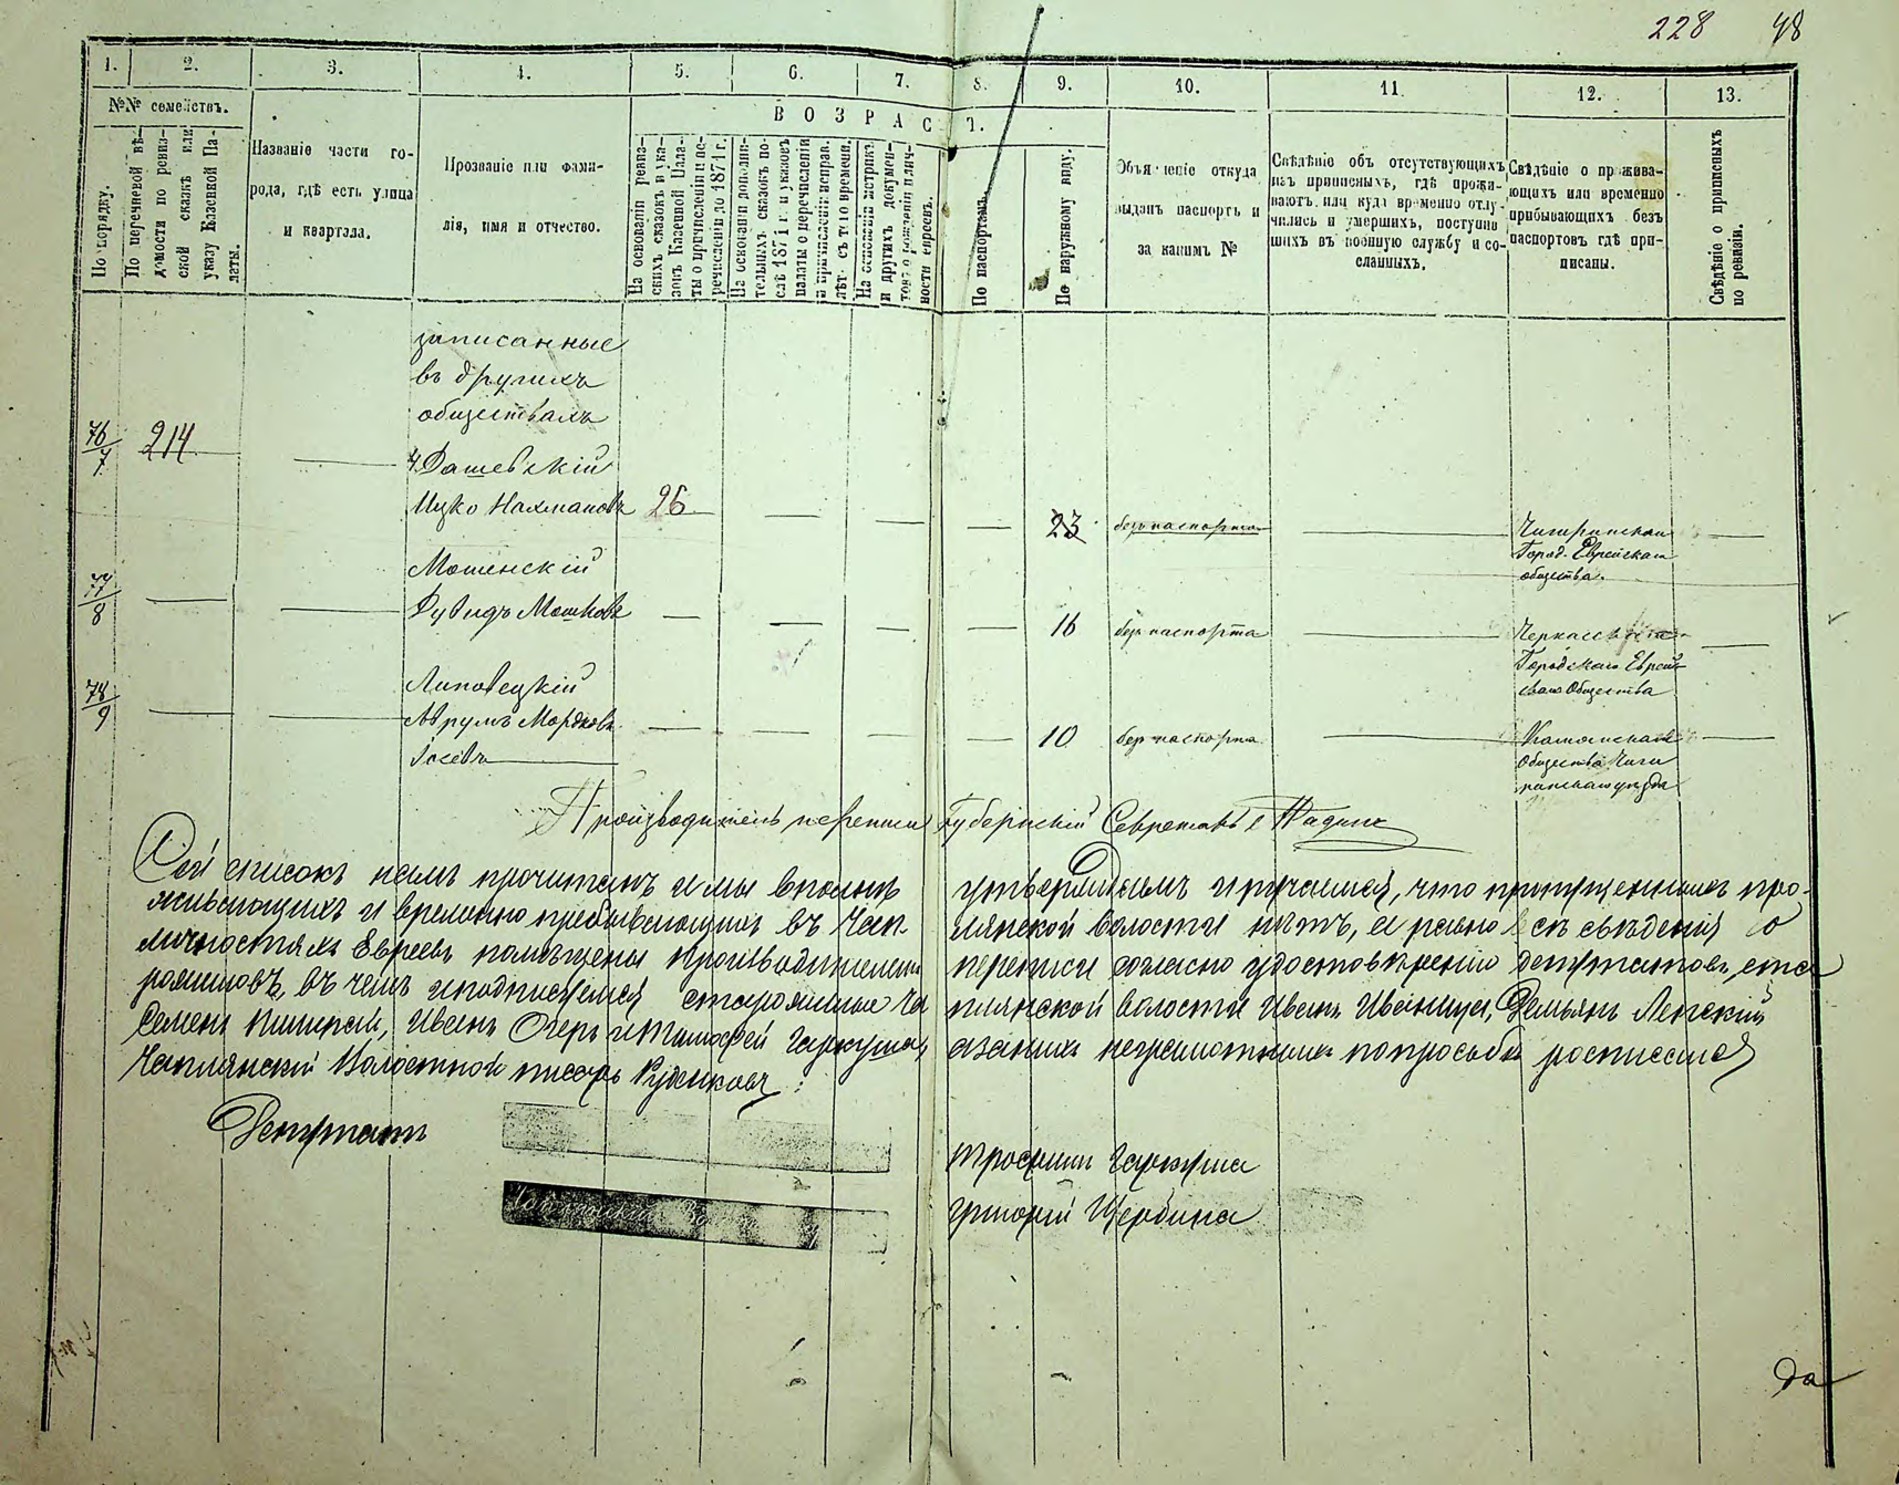 228 48
1. 2. 3. 4. 5. 6. 7. 8. 9. 10. 11. 12. 13.
№№ семействъ.
По порядку.
По перечневой вѣ-
домости по ревиз-
ской сказкѣ или
указу Казенной Па-
латы.
Названіе части го-
рода, гдѣ есть улица
и квартала.
Прозваніе или фами-
лія, имя и отчество.
ВОЗРАСТ.
На основаніи ревиз-
скихъ сказокъ и ука-
зовъ Казенной Пала-
ты о причисленіи и пе-
речисленіи до 1871 г.
На основаніи дополни-
тельныхъ сказокъ по-
слѣ 1871 г. и указовъ
палаты о перечисленіи
и причисленіи исправ.
лѣт. съ того времени.
На основаніи метрикъ
и другихъ докумен-
товъ о рожденіи лич-
ности евреевъ.
По паспортамъ.
По наружному виду.
Объясненіе откуда
выданъ паспортъ и
за какимъ №
Свѣдѣніе объ отсутствующихъ
изъ приписныхъ, гдѣ прожи-
ваютъ или куда временно отлу-
чились и умершихъ, поступив
шихъ въ военную службу и со-
сланныхъ.
Свѣдѣніе о прожива-
ющихъ или временно
прибывающихъ безъ
паспортовъ гдѣ при-
писаны.
Свѣдѣніе о приписныхъ
по ревизіи.
записанные
въ другихъ
обществахъ
76/7 214 Дашевскій
Ицко Нахмановъ 26 23 безъ паспорта Чигиринскаго
Город. Еврейскаго
общества.
Мошенскій
77/8 Дувидъ Мошковъ 16 безъ паспорта Черкасскаго
Городскаго Еврей-
скаго Общества
Липовецкій
78/9 Аврумъ Мордковъ 10 безъ паспорта
Общества Чиги
ринскаго уѣзда
Производитель переписи Губернскій Секретарь
Сей списокъ намъ прочитанъ и мы вполнѣ утверждаемъ и ручаемся, что пропущенныхъ про-
живающихъ и временно пребывающихъ въ Чап лянской волости нѣтъ, а равно всѣ свѣденія о
личностяхъ Евреевъ помѣщены производителемъ переписи согласно удостовѣренію депутатовъ, ста
рожиловъ, въ чемъ и подписуемся старожилы Ча плянской волости Иванъ Иваница, Демьянъ Ленскій
Семенъ Иванъ Огерь и Тимофей Гаркуша, а за нихъ неграмотныхъ по просьбѣ росписался
Чаплянскій Волостной писарь Руденковъ
Депутатъ
Трофимъ Гаркуша
Григорій Щербина
да